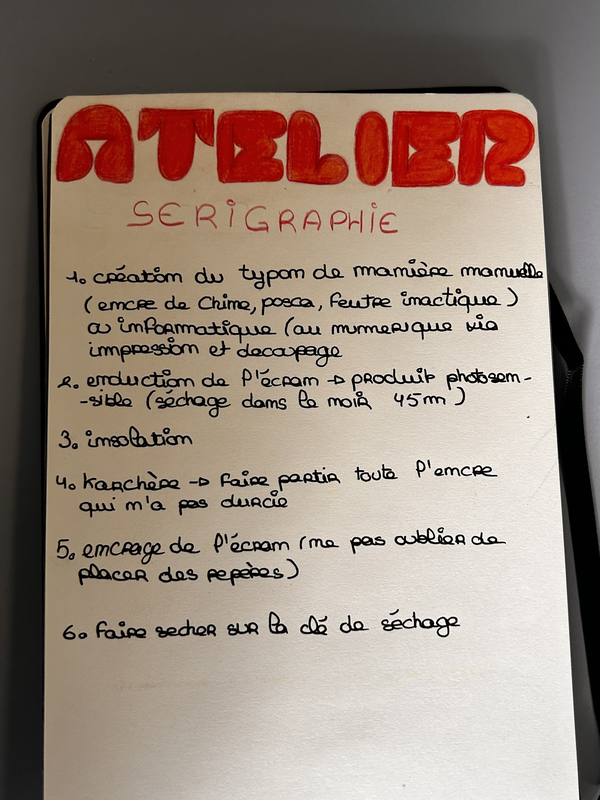 ATELIER
SERIGRAPHIE
1. création du typon de manière manuelle
(encre de Chine, posca, feutre inactique)
ou informatique (au numerique via
impression et decoupage
2. enduction de l'écran → produit photosen-
-sible (séchage dans le noir 45mn)
3. insolation
4. Karchère → faire partir toute l'encre
qui n'a pas durcie
5. encrage de l'écran (ne pas oublier de
placer des repères)
6. faire secher sur la clé de séchage